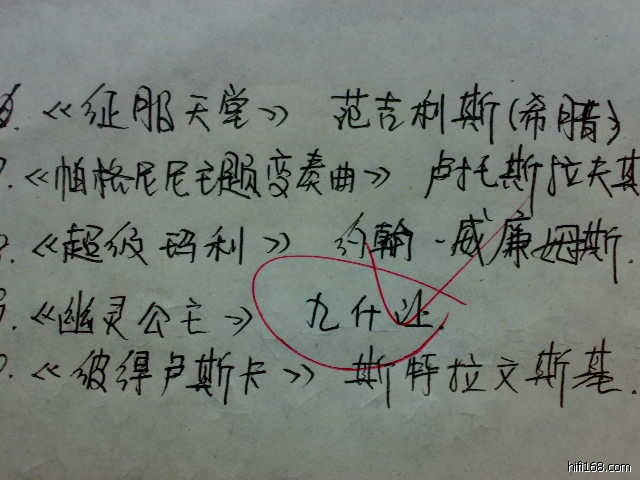 《征服天堂》 范吉利斯(希腊)
《帕格尼尼主题变奏曲》 卢托斯拉夫其
《超级玛利》 约翰·威廉姆斯.
《幽灵公主》 九什让.
《彼得卢斯卡》 斯特拉文斯基.
hifi168.com